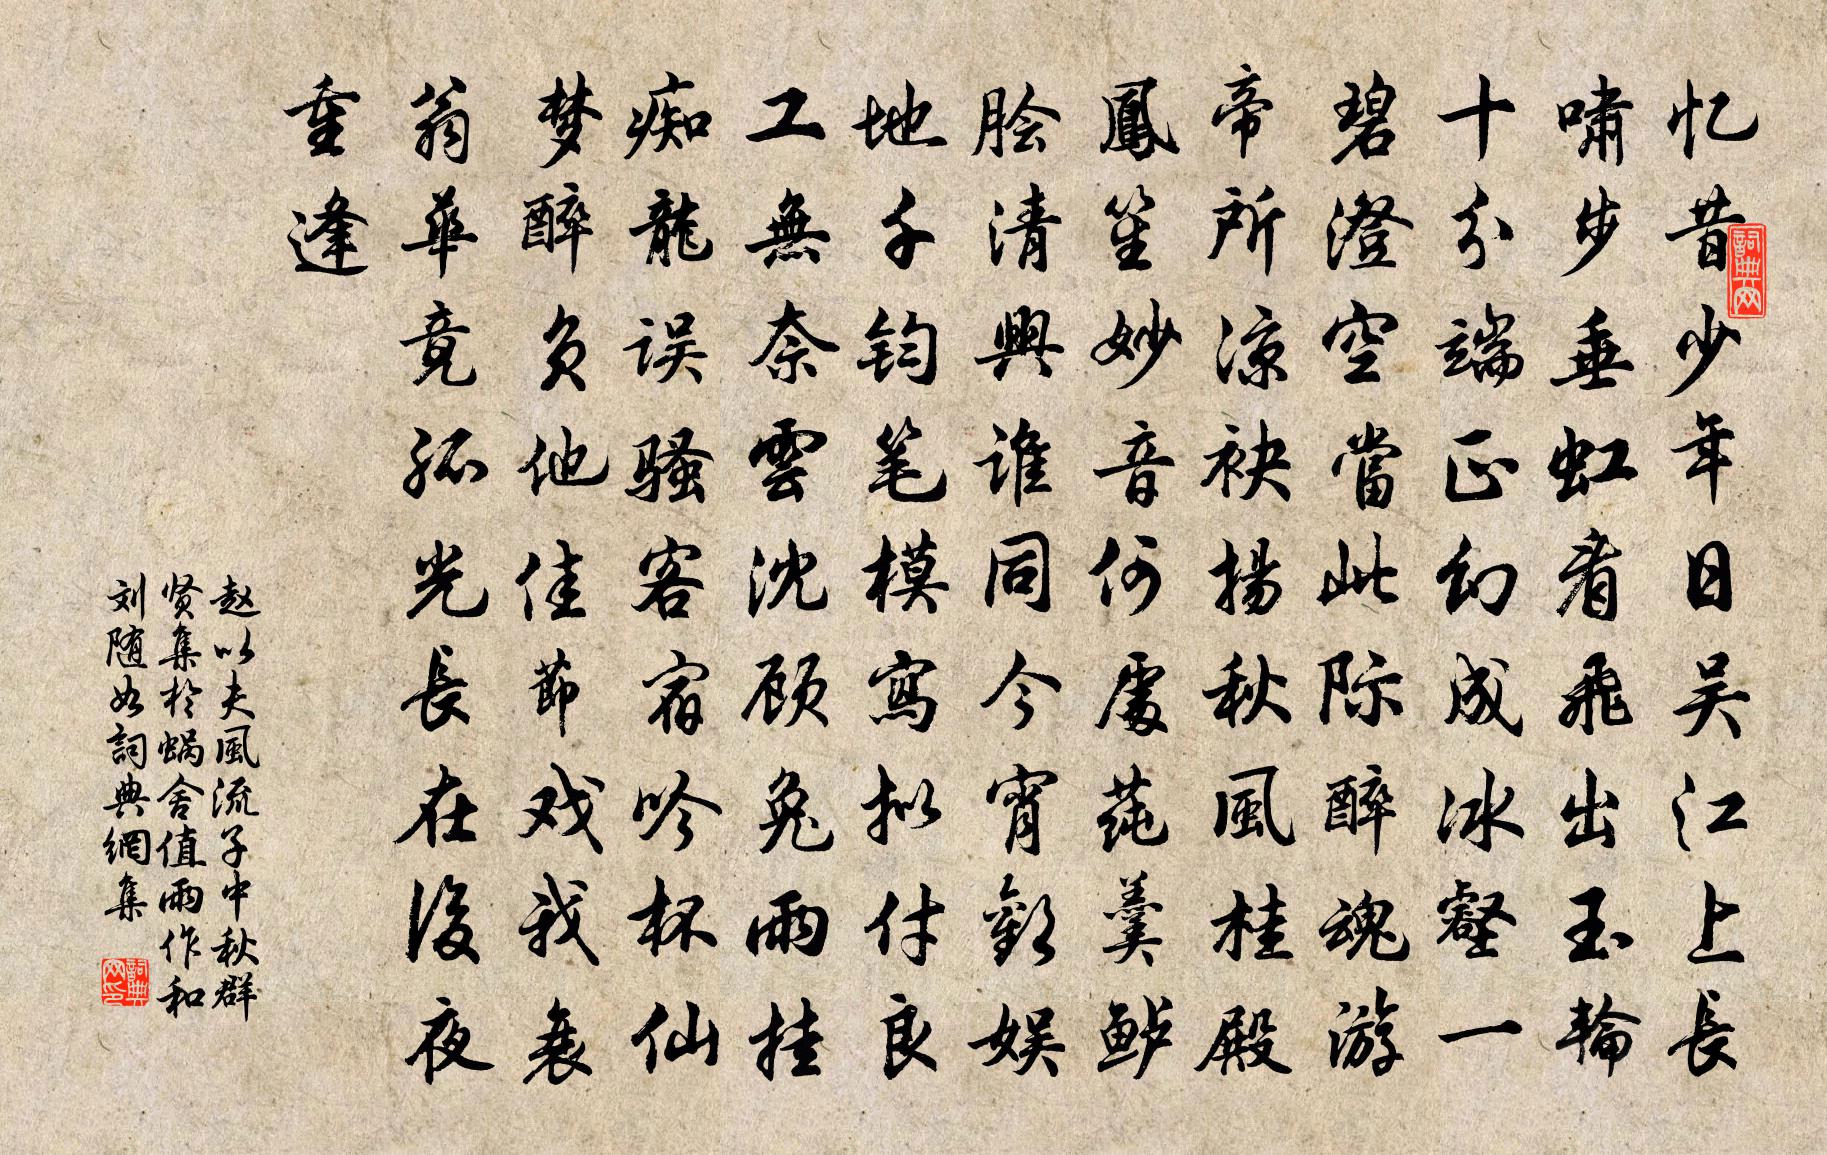 忆昔少年日吴江上長
啸步垂虹看飛出玉輪
十分端正幻成冰壑一
碧澄空當此际醉魂游
帝所凉袂揚秋風桂殿
鳳笙妙音何處莼羹鲈
脍清興谁同今宵歡娱
地千钧笔模寫拟付良
工無奈雲沈顾兔雨挂
痴龍误骚客宿吟杯仙
梦醉负他佳節戏我衰
翁華竟孤光長在後夜
重逢
赵以夫風流子中秋群
贤集於蜗舍值雨作和
刘随如詞典網集
詞典网
詞典网印